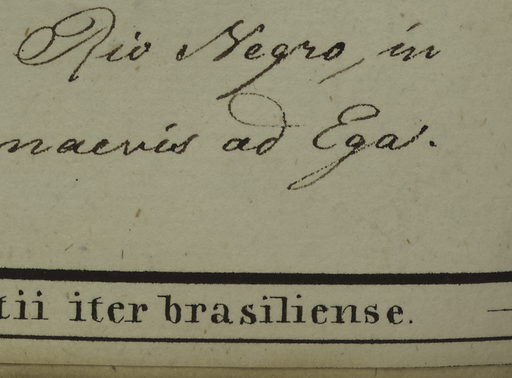 Rio Negro, in
naevis ad Ega.
tii iter brasiliense.